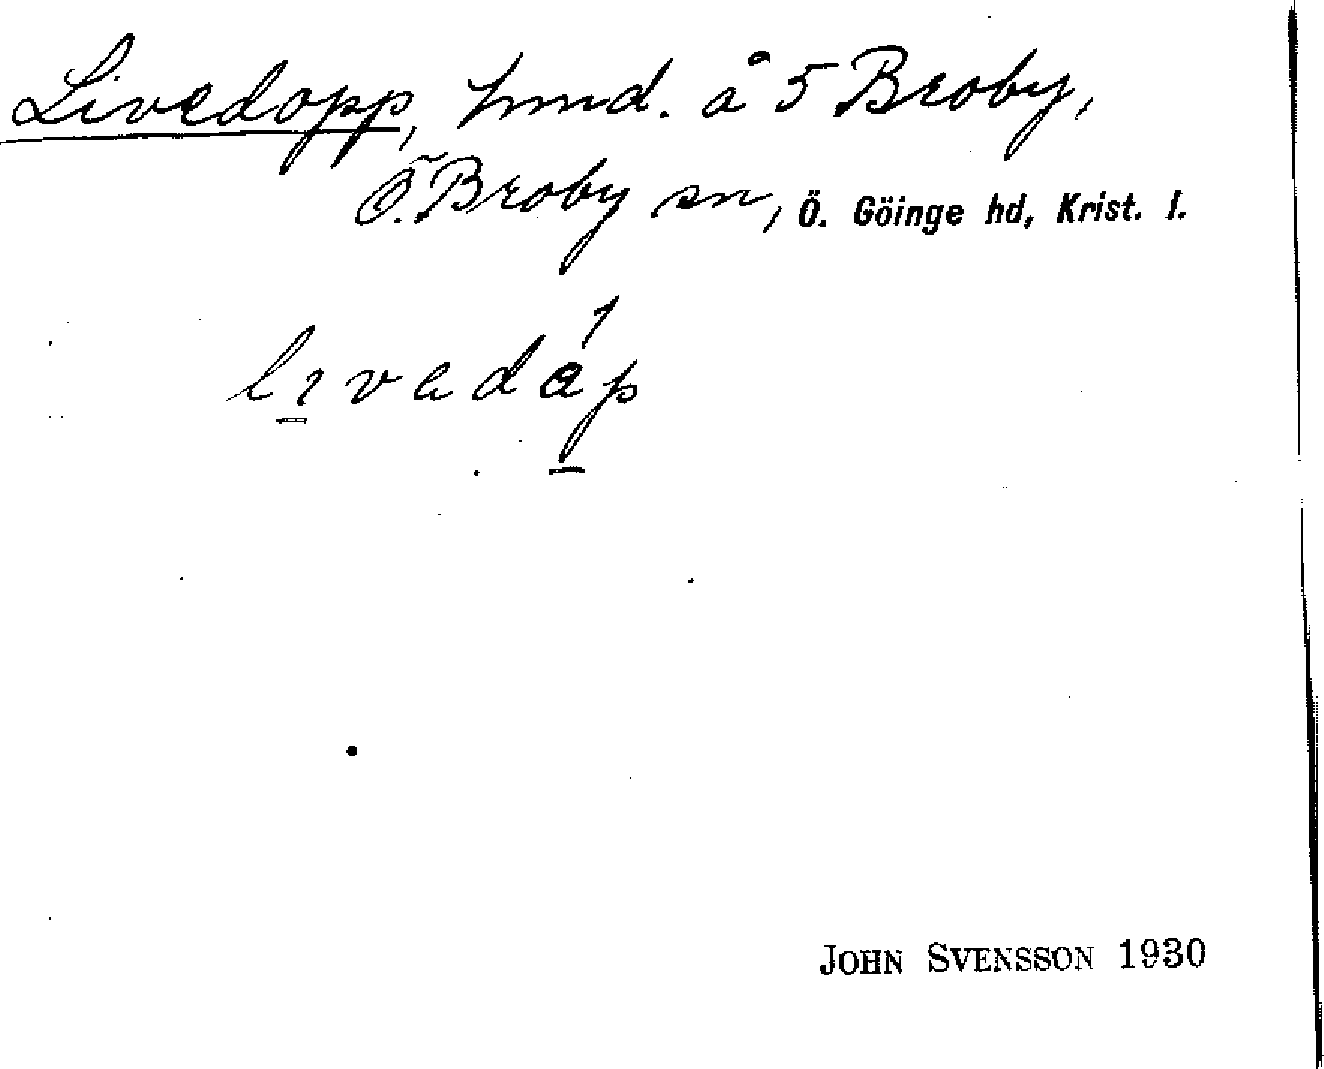 Livedopp, hmd. å 5 Broby,
Ö. Broby sn, Ö. Göinge hd, Krist. l.
livadåp
JOHN SVENSSON 1930